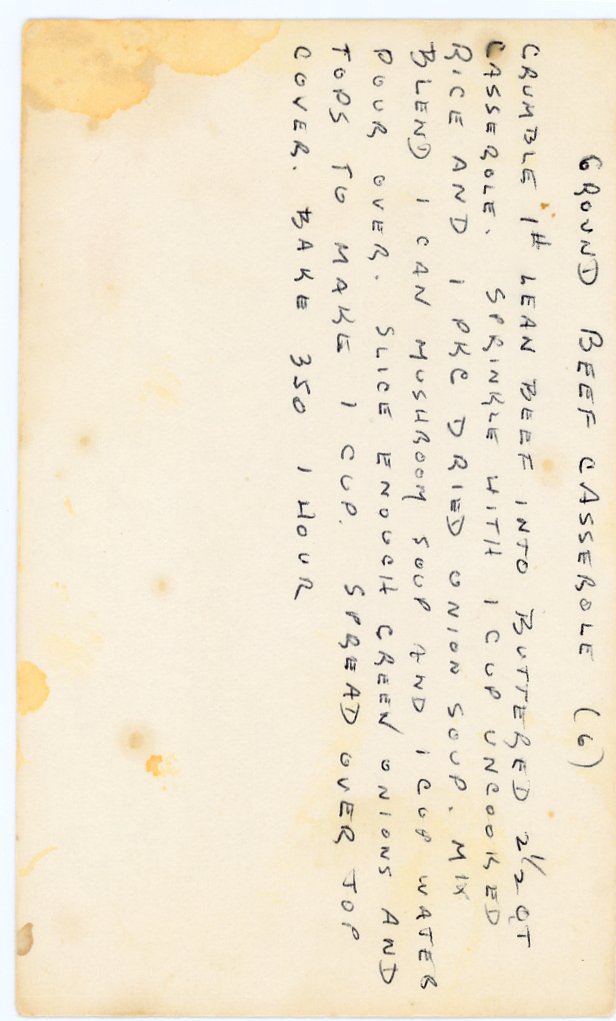 GROUND BEEF CASSEROLE (6)
CRUMBLE 1# LEAN BEEF INTO BUTTERED 2 1/2 QT
CASSEROLE. SPRINKLE WITH 1 CUP UNCOOKED
RICE AND 1 PKG DRIED ONION SOUP. MIX
BLEND 1 CAN MUSHROOM SOUP AND 1 CUP WATER
POUR OVER. SLICE ENOUGH GREEN ONIONS AND
TOPS TO MAKE 1 CUP. SPREAD OVER TOP
COVER. BAKE 350 1 HOUR